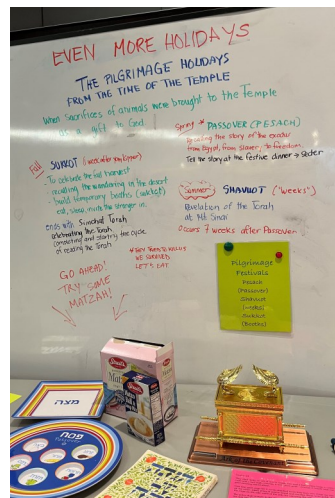 EVEN MORE HOLIDAYS
THE PILGRIMAGE HOLIDAYS
FROM THE TIME OF THE TEMPLE
When sacrifices of animals were brought to the Temple
as a gift to God
Fall
SUKKOT (1 week after Yom Kippur)
- To celebrate the fall harvest
- recalling the wandering in the desert
- build temporary booths (sukkot)
eat, sleep, invite the stranger in
ends with Simchat Torah
celebrating the Torah
completing and starting the cycle
of reading the Torah
Spring * PASSOVER (PESACH)
the story of the exodus
from Egypt, from slavery, to freedom
Tell the story at the festive dinner → Seder
Summer SHAVUOT ("Weeks")
Revelation of the Torah
at Mt Sinai
Occurs 7 weeks after Passover
* THEY TRIED TO KILL US
WE SURVIVED
LET'S EAT
GO AHEAD!
TRY SOME
MATZAH!
Pilgrimage
Festivals
Pesach
(Passover)
Shavuot
(Weeks)
Sukkot
(Booths)
מצה
פסח